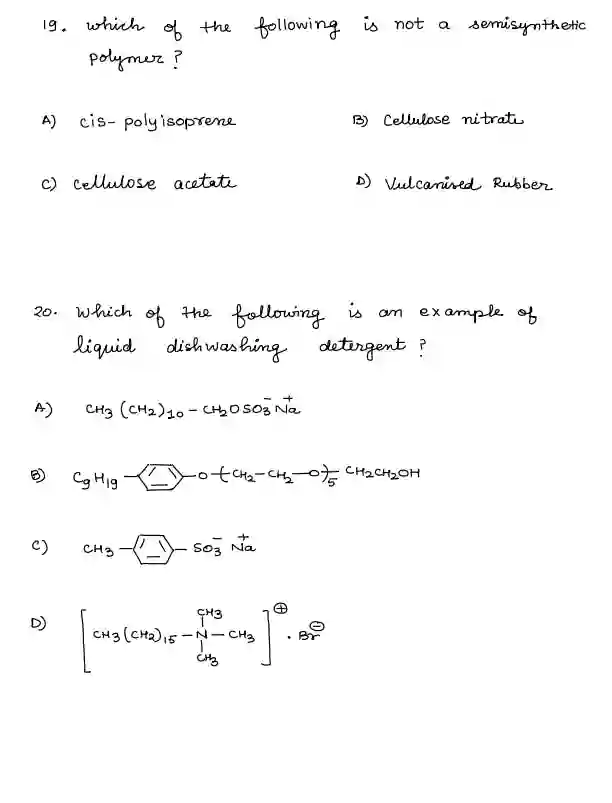 19. which of the following is not a semisynthetic
polymer ?
A) cis-polyisoprene B) Cellulose nitrate
C) cellulose acetate D) Vulcanised Rubber
20. Which of the following is an example of
liquid dishwashing detergent ?
A) CH3 (CH2)10 – CH2OSO3⁻ Na⁺
B) C9H19 – O –( CH2 – CH2 – O )5 CH2CH2OH
C) CH3 – SO3⁻ Na⁺
CH3
D) [ CH3(CH2)15 – N – CH3 ]⊕ . Br⊖
CH3